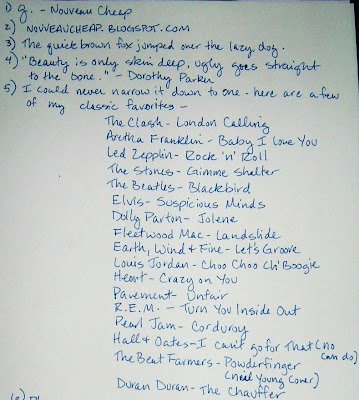 1) g. - Nouveau Cheap
2) NOUVEAUCHEAP.BLOGSPOT.COM
3) The quick brown fox jumped over the lazy dog.
4) "Beauty is only skin deep, ugly goes straight
to the bone." - Dorothy Parker
5) I could never narrow it down to one - here are a few
of my classic favorites -
The Clash - London Calling
Aretha Franklin - Baby I Love You
Led Zepplin - Rock 'n' Roll
The Stones - Gimme Shelter
The Beatles - Blackbird
Elvis - Suspicious Minds
Dolly Parton - Jolene
Fleetwood Mac - Landslide
Earth, Wind & Fire - Let's Groove
Louis Jordan - Choo Choo Ch'Boogie
Heart - Crazy on You
Pavement - Unfair
R.E.M. - Turn You Inside Out
Pearl Jam - Corduroy
Hall & Oates - I can't go for that (no
can do)
The Beat Farmers - Powderfinger
(Neil Young cover)
Duran Duran - The Chauffer